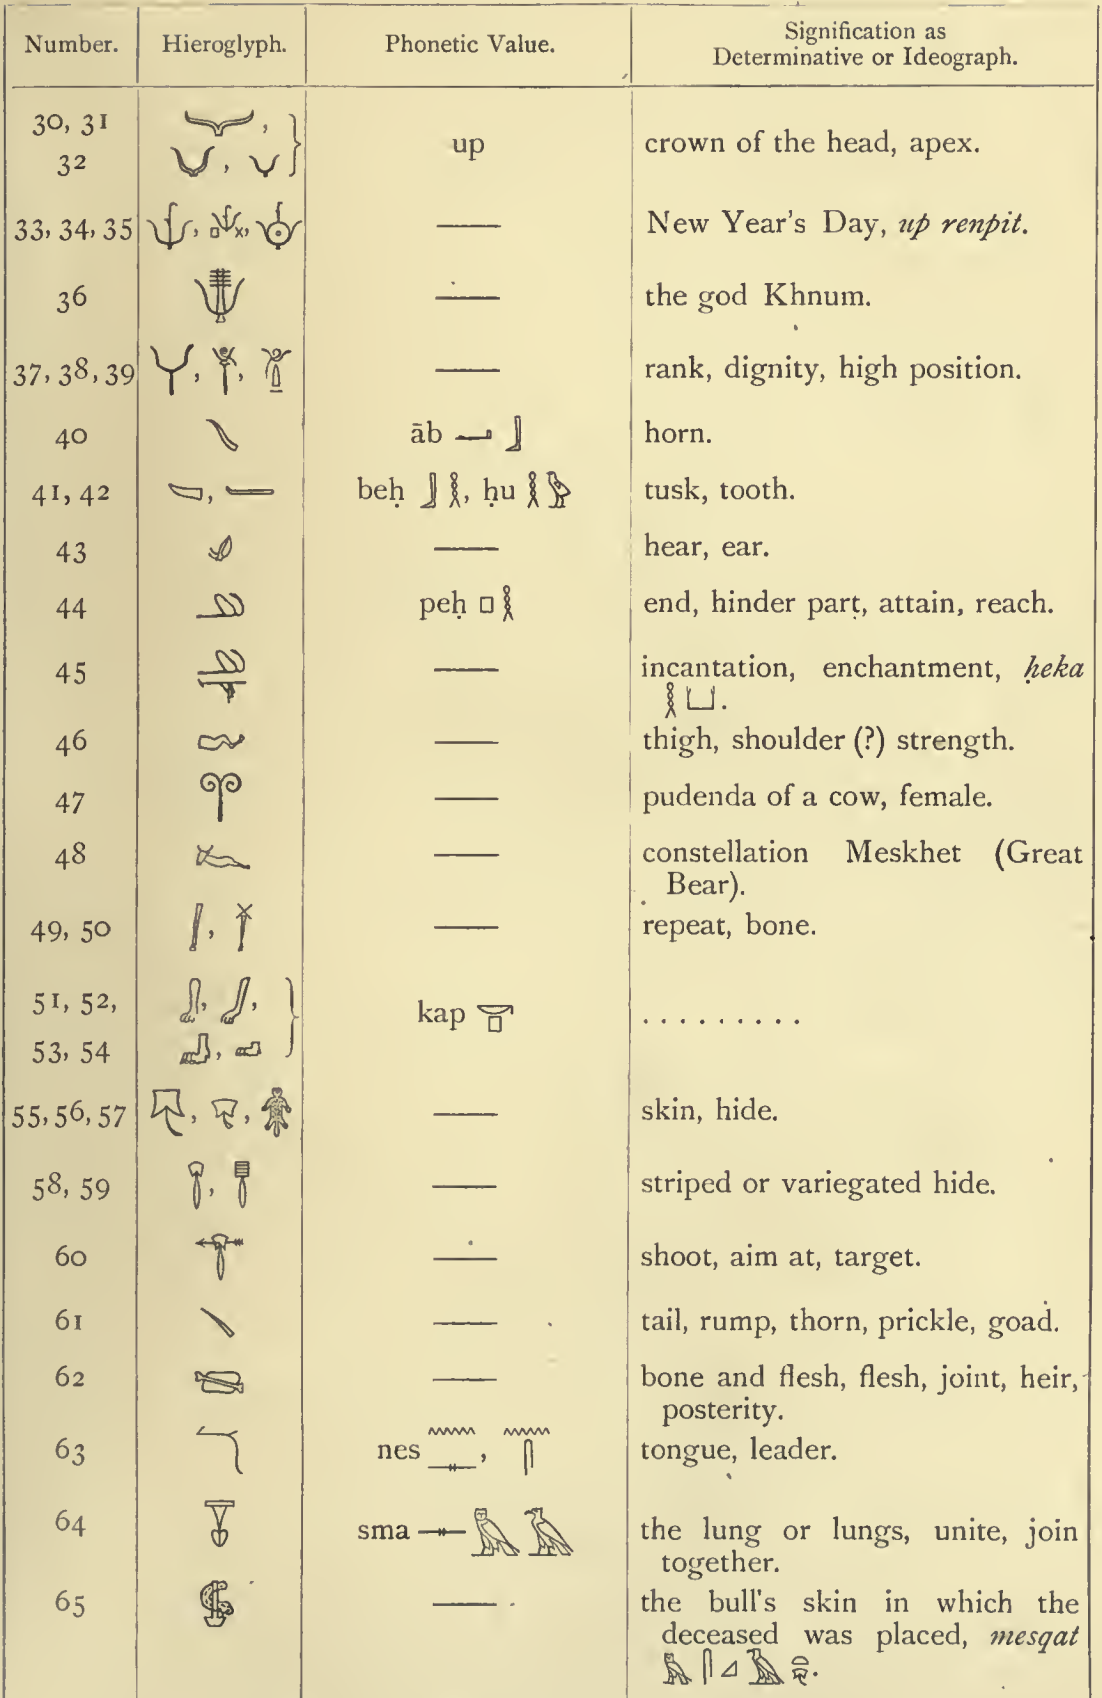 Number. Hieroglyph. Phonetic Value. Signification as Determinative or Ideograph.
30, 31 𓄋,
32 up crown of the head, apex.
33, 34, 35 —— New Year's Day, up renpit.
36 —— the god Khnum.
37, 38, 39 —— rank, dignity, high position.
40 𓄏 āb 𓂝 𓃀 horn.
41, 42 𓄑, beḥ 𓃀 𓎛, ḥu 𓎛 𓅱 tusk, tooth.
43 𓄔 —— hear, ear.
44 𓄖 peḥ 𓊪 𓎛 end, hinder part, attain, reach.
45 —— incantation, enchantment, ḥeka
𓎛 𓂓.
46 𓄗 —— thigh, shoulder (?) strength.
47 —— pudenda of a cow, female.
48 𓄘 —— constellation Meskhet (Great
Bear).
49, 50 —— repeat, bone.
51, 52,
53, 54 kap . . . . . . . . .
55, 56, 57 —— skin, hide.
58, 59 —— striped or variegated hide.
60 —— shoot, aim at, target.
61 —— tail, rump, thorn, prickle, goad.
62 —— bone and flesh, flesh, joint, heir,
posterity.
63 nes 𓈖 𓊃, 𓈖 𓋴 tongue, leader.
64 𓄥 sma 𓊃 𓅓 𓄿 the lung or lungs, unite, join
together.
65 —— the bull's skin in which the
deceased was placed, mesqat
𓅓 𓋴 𓈎 𓄿.